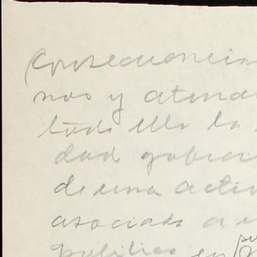 (Consecuencia
nos y atend
todo ello la
dad gobier
de una activ
asociada a